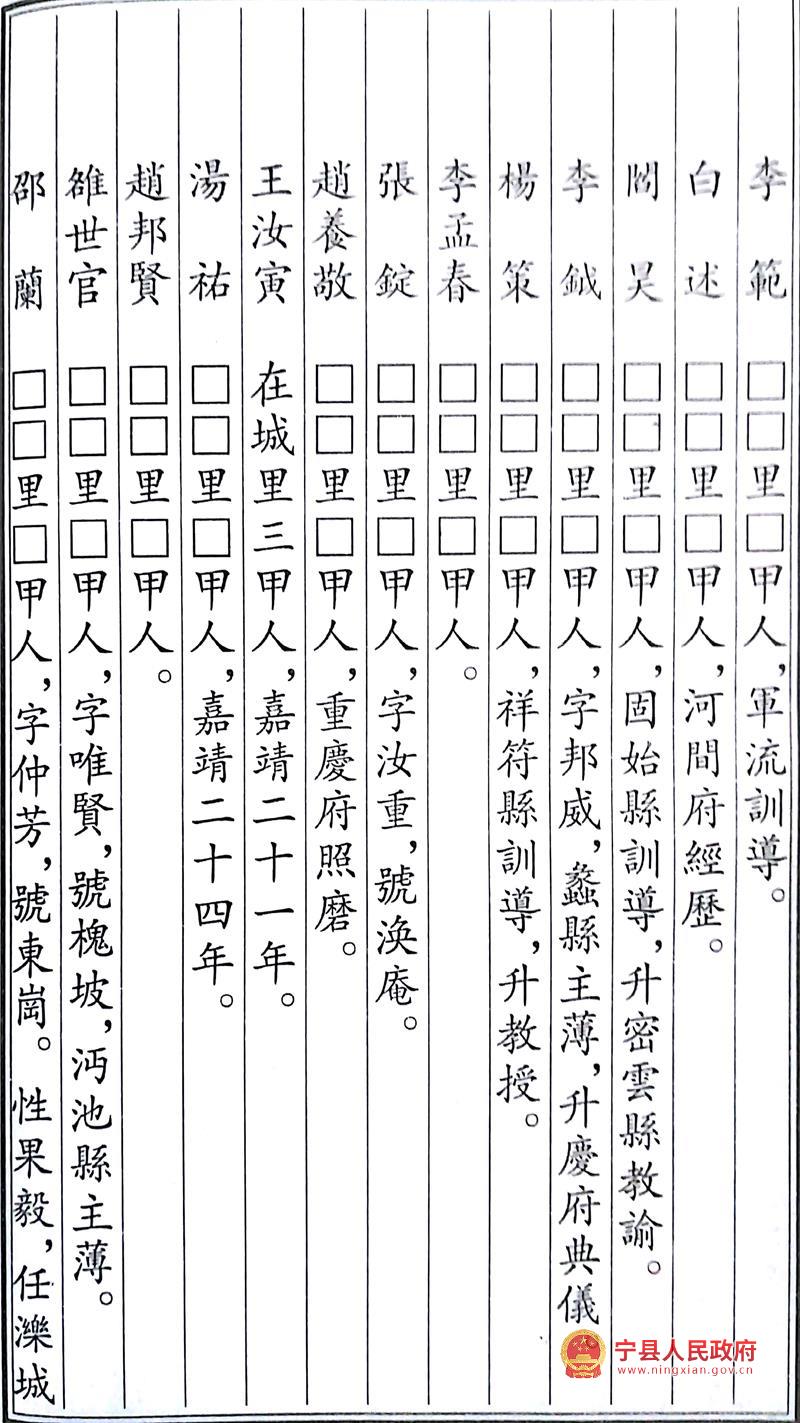 李範 □□里□甲人，軍流訓導。
白述 □□里□甲人，河間府經歷。
閻昊 □□里□甲人，固始縣訓導，升密雲縣教諭。
李鉞 □□里□甲人，字邦威，蠡縣主薄，升慶府典儀
楊策 □□里□甲人，祥符縣訓導，升教授。
李孟春 □□里□甲人。
張錠 □□里□甲人，字汝重，號渙庵。
趙養敬 □□里□甲人，重慶府照磨。
王汝寅 在城里三甲人，嘉靖二十一年。
湯祐 □□里□甲人，嘉靖二十四年。
趙邦賢 □□里□甲人。
雒世官 □□里□甲人，字唯賢，號槐坡，沔池縣主薄。
邵蘭 □□里□甲人，字仲芳，號東崗。性果毅，任灤城
宁县人民政府
www.ningxian.gov.cn